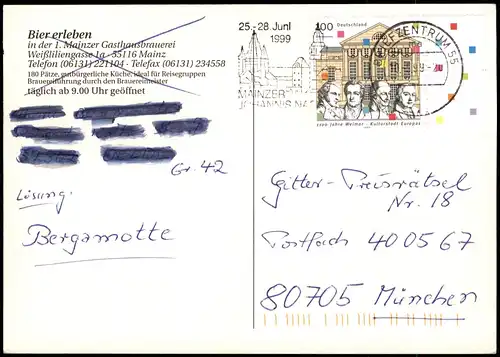 Bier erleben
in der 1. Mainzer Gasthausbrauerei
Weißliliengasse 1a - 55116 Mainz
Telefon (06131) 221104 - Telefax (06131) 234558
180 Plätze, gutbürgerliche Küche, ideal für Reisegruppen
Brauereiführung durch den Brauereimeister
täglich ab 9.00 Uhr geöffnet
25.-28 Juni
1999
MAINZER
JOHANNISNA
100
Deutschland
BRIEFZENTRUM 55
1100 Jahre Weimar - Kulturstadt Europas
Gr. 42
Lösung:
Bergamotte
Gitter-Preisrätsel
Nr. 18
Postfach 40 05 67
80705 München